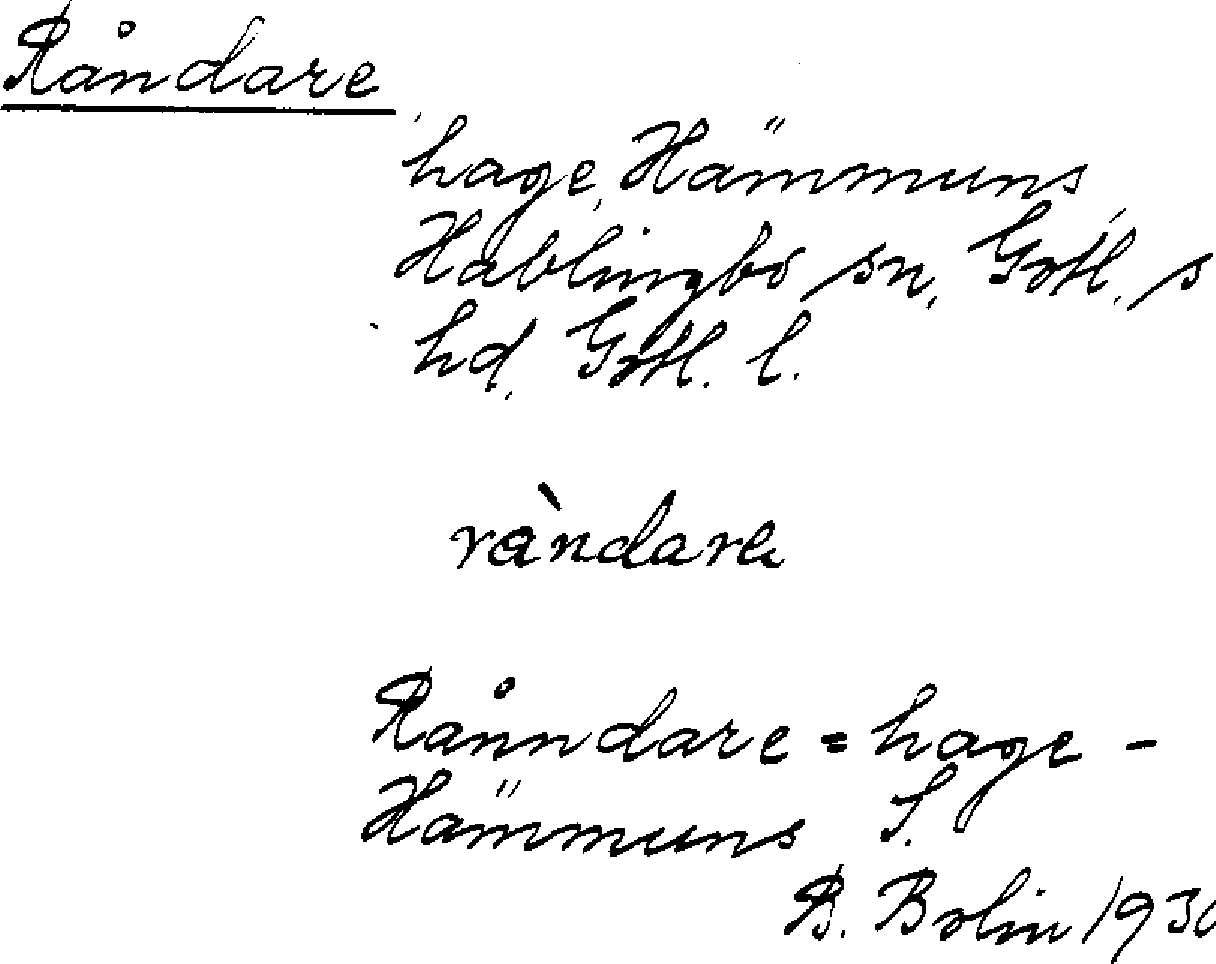 Råndare
hage, Hämmuns,
Hablingbo sn, Gotl. s
hd, Gotl. l.
ràndare
Rånndare = hage -
Hämmuns S.
B. Bolin 1930